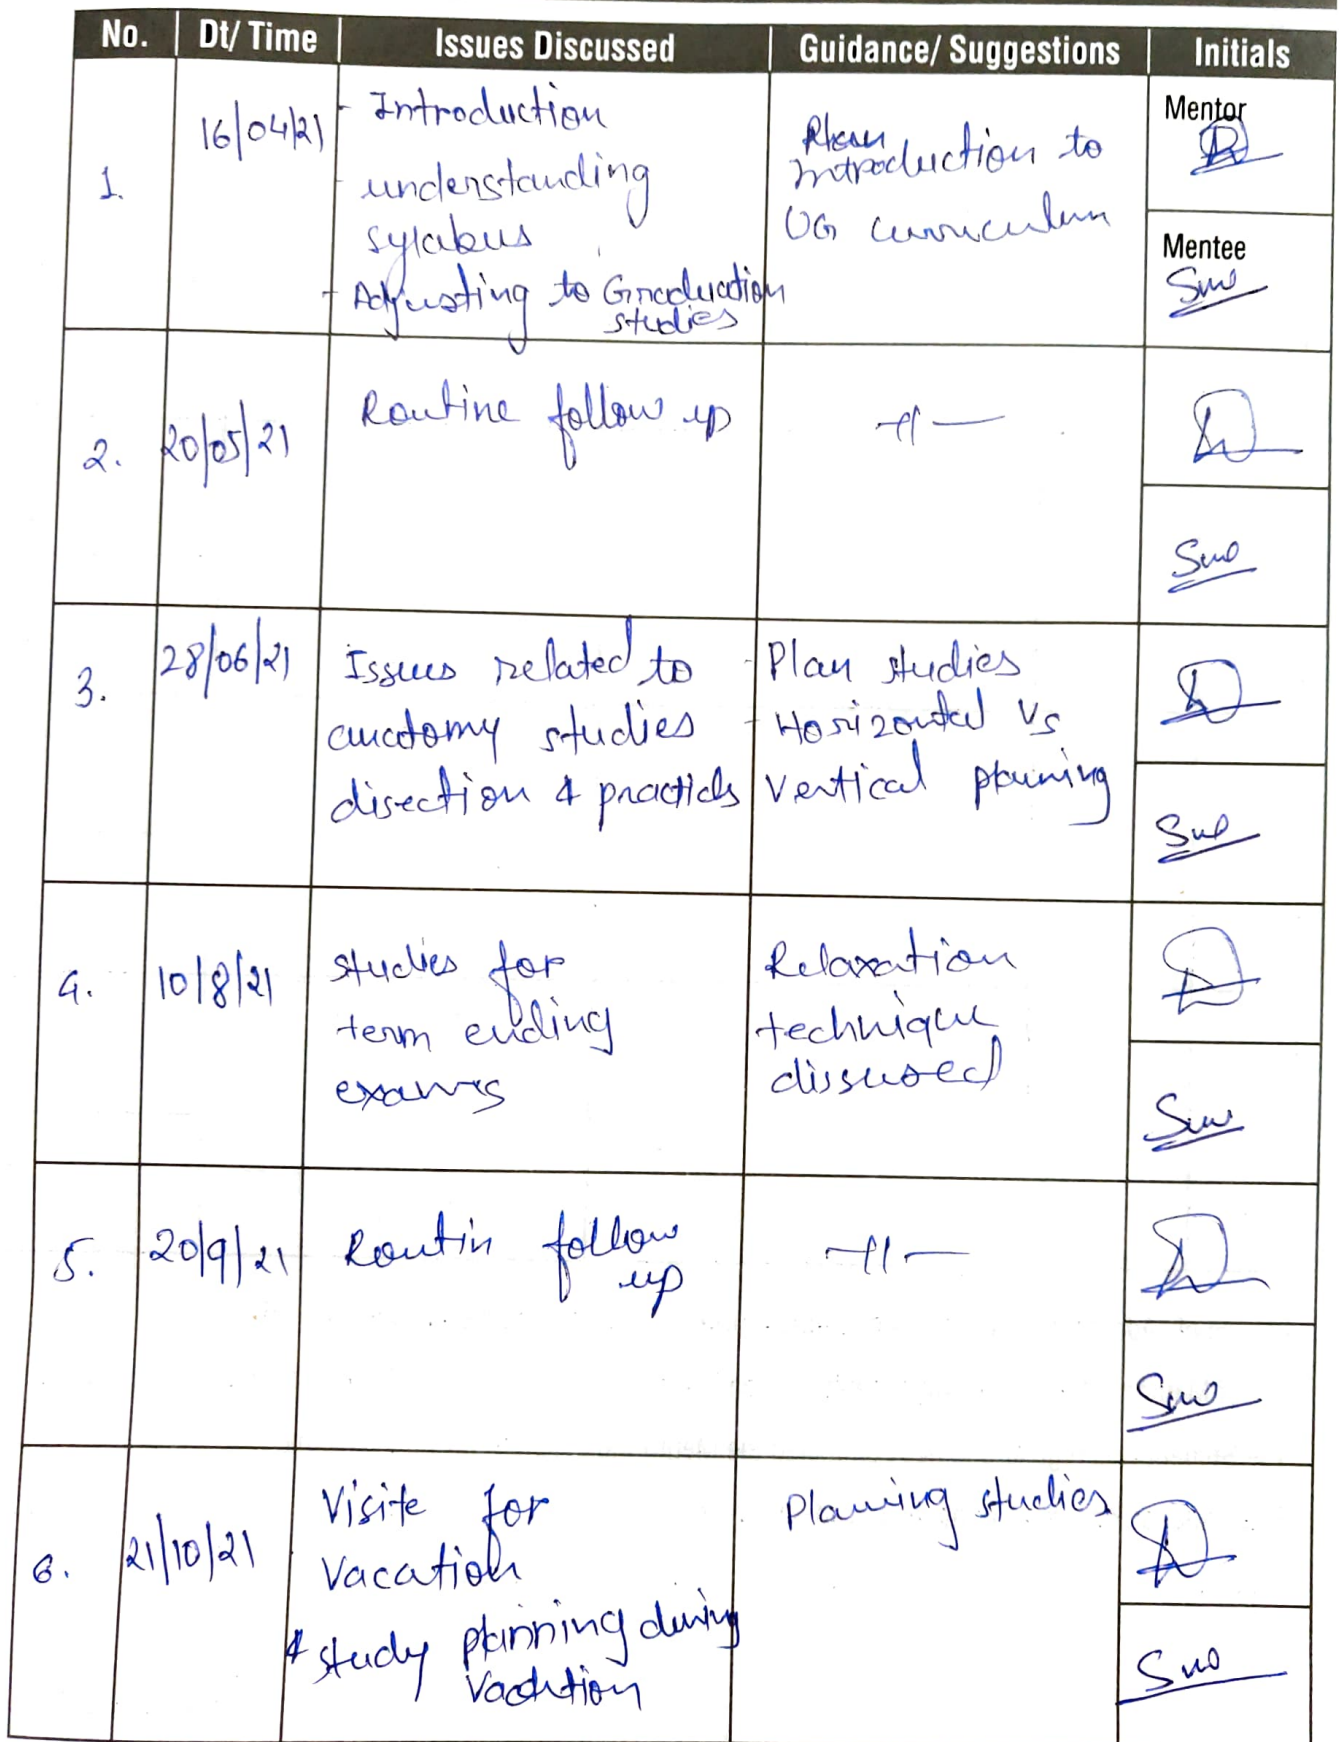 No. Dt/ Time Issues Discussed Guidance/ Suggestions Initials
1. 16/04/21
- Introduction
- understanding
sylabus
- Adjusting to Graduation
studies
Plan
Introduction to
UG curriculum
Mentor
Mentee
2. 20/05/21
Routine follow up
—〃—
3. 28/06/21
Issues related to
anatomy studies
disection & practicls
- Plan studies
- Horizontal Vs
Vertical planning
4. 10/8/21
studies for
term ending
exams
Relaxation
technique
dissused
5. 20/9/21
Routin follow
up
—〃—
6. 21/10/21
Visite for
Vacation
& study planning during
Vacation
Planning studies